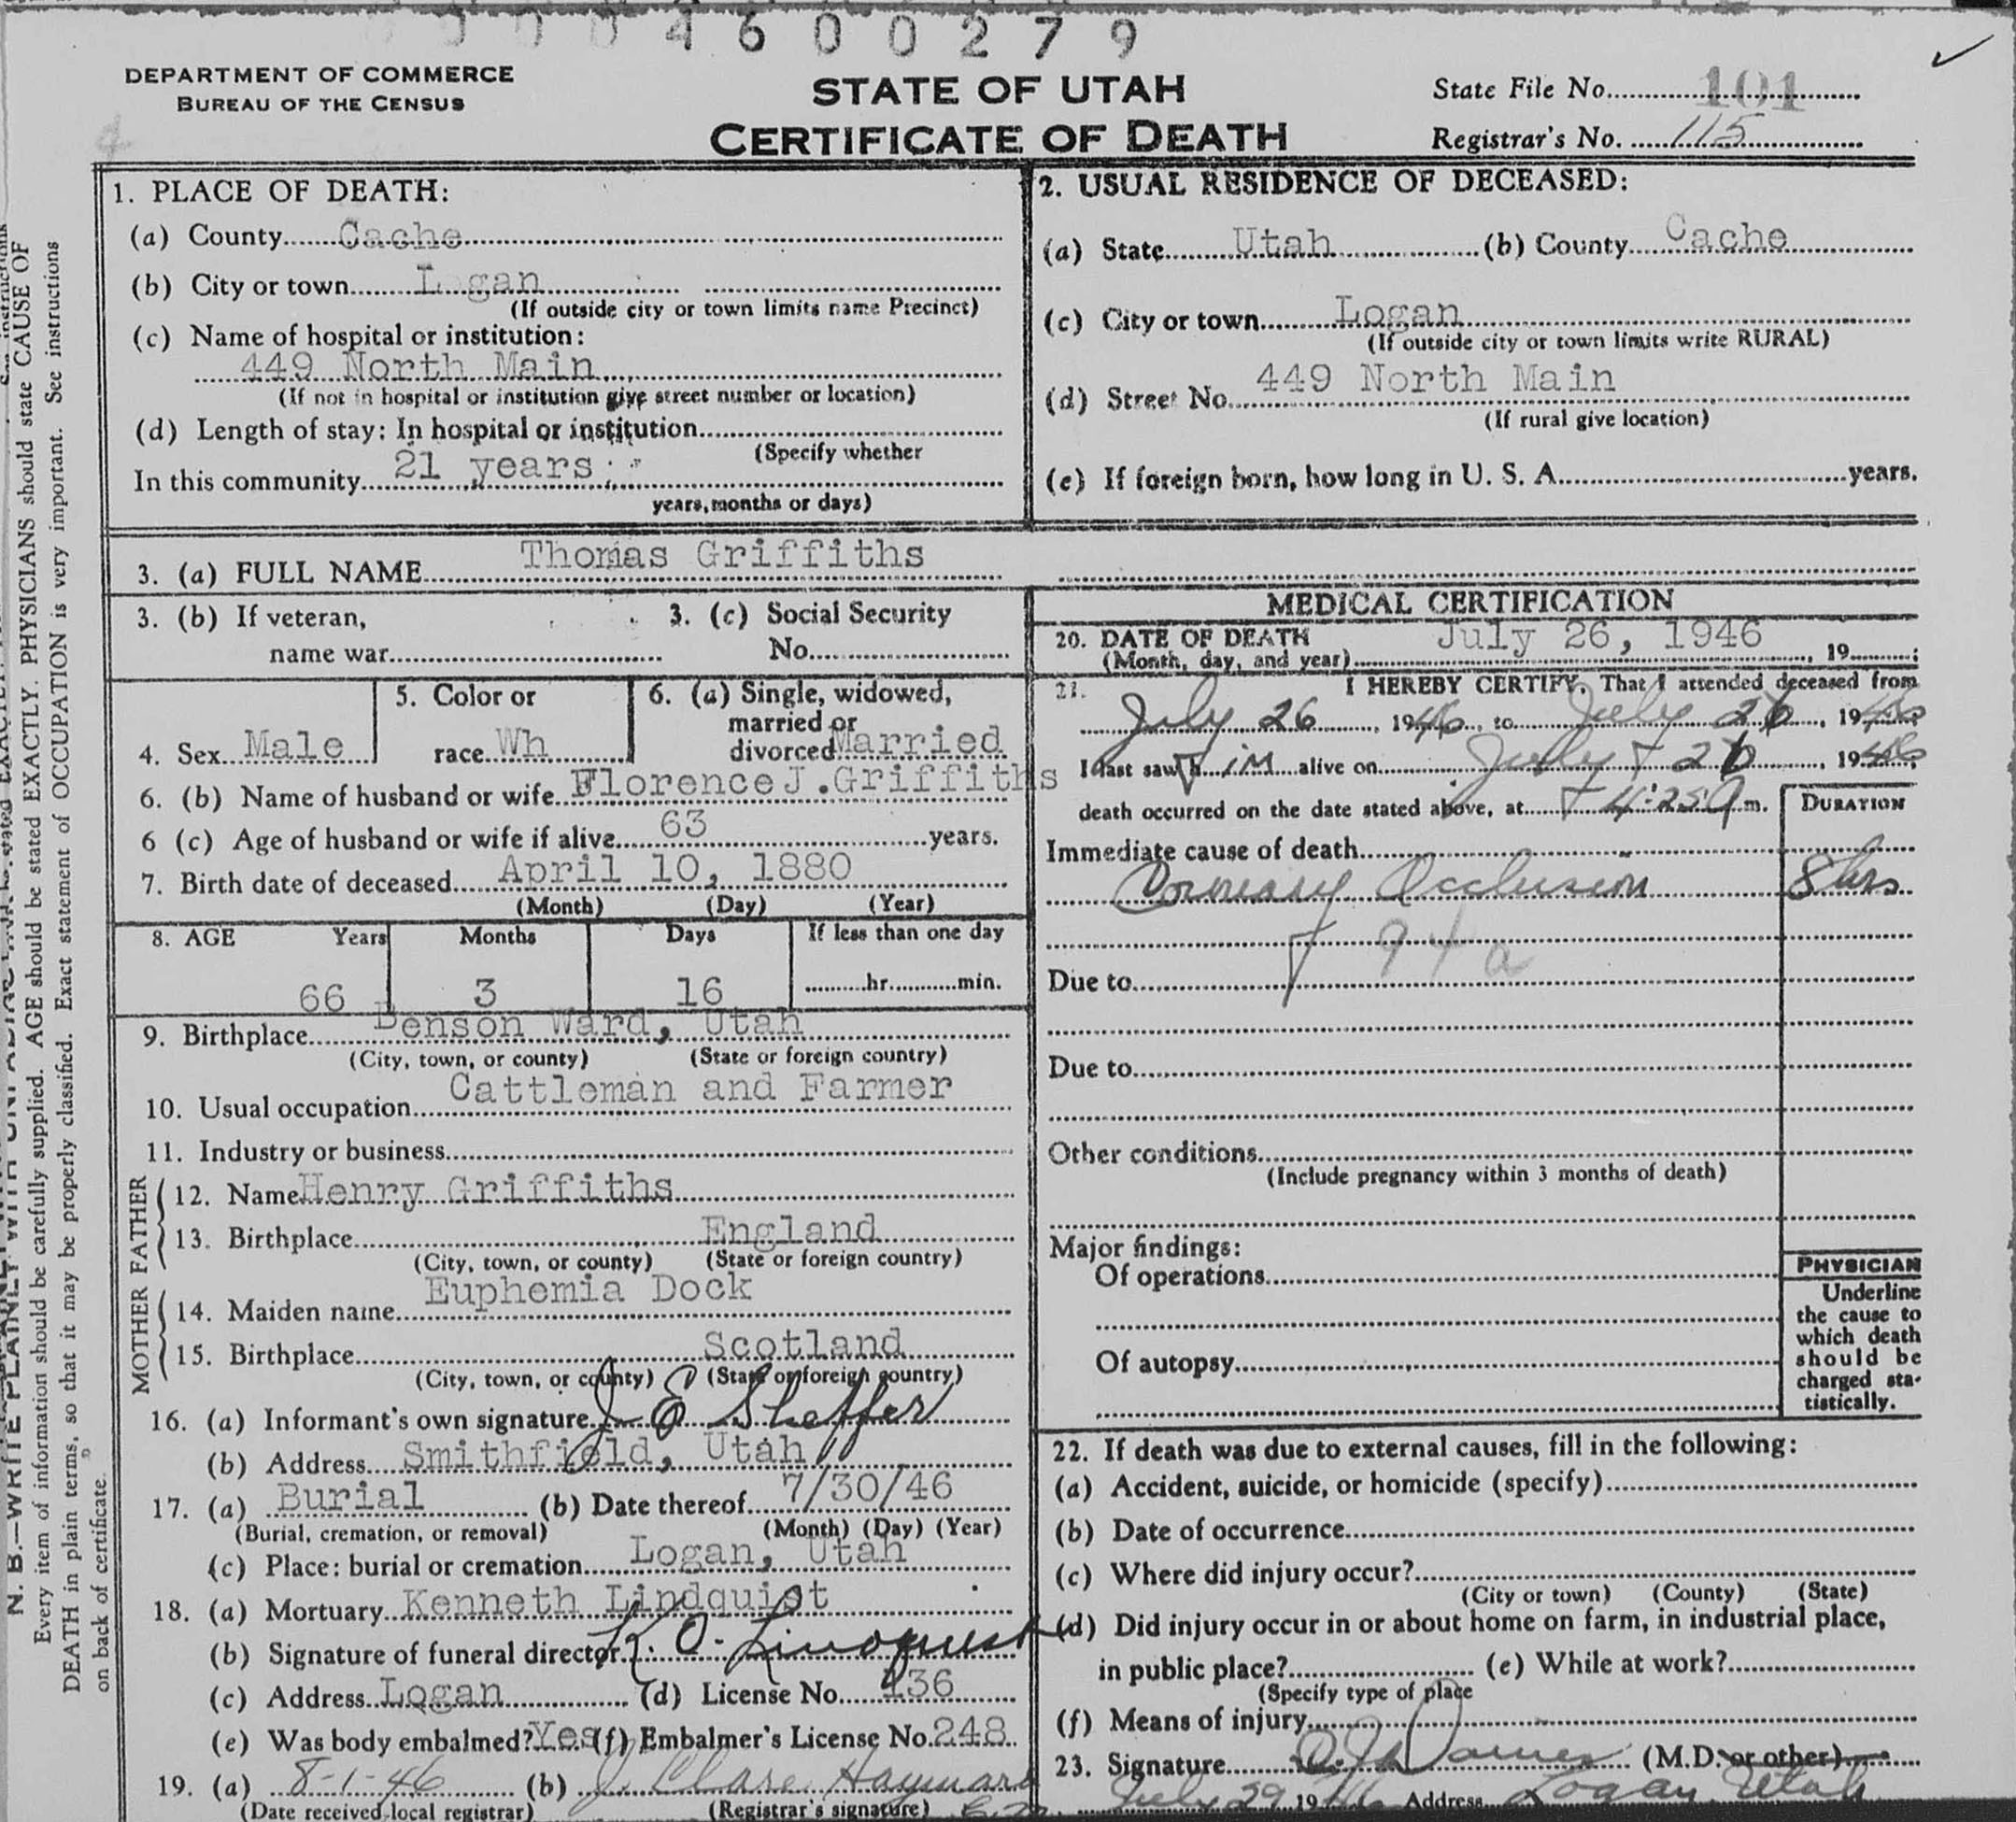 0004600279
DEPARTMENT OF COMMERCE
BUREAU OF THE CENSUS
STATE OF UTAH
CERTIFICATE OF DEATH
State File No. 101
Registrar's No. 115
1. PLACE OF DEATH:
(a) County Cache
(b) City or town Logan
(If outside city or town limits name Precinct)
(c) Name of hospital or institution:
449 North Main
(If not in hospital or institution give street number or location)
(d) Length of stay: In hospital or institution
(Specify whether
In this community 21 years
years, months or days)
2. USUAL RESIDENCE OF DECEASED:
(a) State Utah (b) County Cache
(c) City or town Logan
(If outside city or town limits write RURAL)
(d) Street No. 449 North Main
(If rural give location)
(e) If foreign born, how long in U. S. A. years.
3. (a) FULL NAME Thomas Griffiths
3. (b) If veteran,
name war
3. (c) Social Security
No.
4. Sex Male
5. Color or
race Wh
6. (a) Single, widowed,
married or
divorced Married
6. (b) Name of husband or wife Florence J. Griffiths
6 (c) Age of husband or wife if alive 63 years.
7. Birth date of deceased April 10, 1880
(Month) (Day) (Year)
8. AGE Years Months Days If less than one day
66 3 16 hr. min.
9. Birthplace Benson Ward, Utah
(City, town, or county) (State or foreign country)
10. Usual occupation Cattleman and Farmer
11. Industry or business
FATHER
12. Name Henry Griffiths
13. Birthplace England
(City, town, or county) (State or foreign country)
MOTHER
14. Maiden name Euphemia Dock
15. Birthplace Scotland
(City, town, or county) (State or foreign country)
16. (a) Informant's own signature J E Sheffer
(b) Address Smithfield, Utah
17. (a) Burial (b) Date thereof 7/30/46
(Burial, cremation, or removal) (Month) (Day) (Year)
(c) Place: burial or cremation Logan, Utah
18. (a) Mortuary Kenneth Lindquist
(b) Signature of funeral director K. O. Lindquist
(c) Address Logan (d) License No. 136
(e) Was body embalmed? Yes (f) Embalmer's License No. 248
19. (a) 8-1-46 (b) J. Clare Hayward
(Date received local registrar) (Registrar's signature)
MEDICAL CERTIFICATION
20. DATE OF DEATH July 26, 1946
(Month, day, and year) , 19 ;
21. I HEREBY CERTIFY, That I attended deceased from
July 26, 1946, to July 26, 1946
I last saw h im alive on July 26, 1946
death occurred on the date stated above, at 4:25 m.
DURATION
Immediate cause of death
Coronary Occlusion 8 hrs
94a
Due to
Due to
Other conditions
(Include pregnancy within 3 months of death)
Major findings:
Of operations
Of autopsy
PHYSICIAN
Underline
the cause to
which death
should be
charged sta-
tistically.
22. If death was due to external causes, fill in the following:
(a) Accident, suicide, or homicide (specify)
(b) Date of occurrence
(c) Where did injury occur?
(City or town) (County) (State)
(d) Did injury occur in or about home on farm, in industrial place,
in public place? (e) While at work?
(Specify type of place
(f) Means of injury
23. Signature (M.D. or other)
July 29 1946 Address Logan Utah
N. B.—WRITE PLAINLY WITH
Every item of information should be carefully supplied. AGE should be stated EXACTLY. PHYSICIANS should state CAUSE OF
DEATH in plain terms, so that it may be properly classified. Exact statement of OCCUPATION is very important. See instructions
on back of certificate.